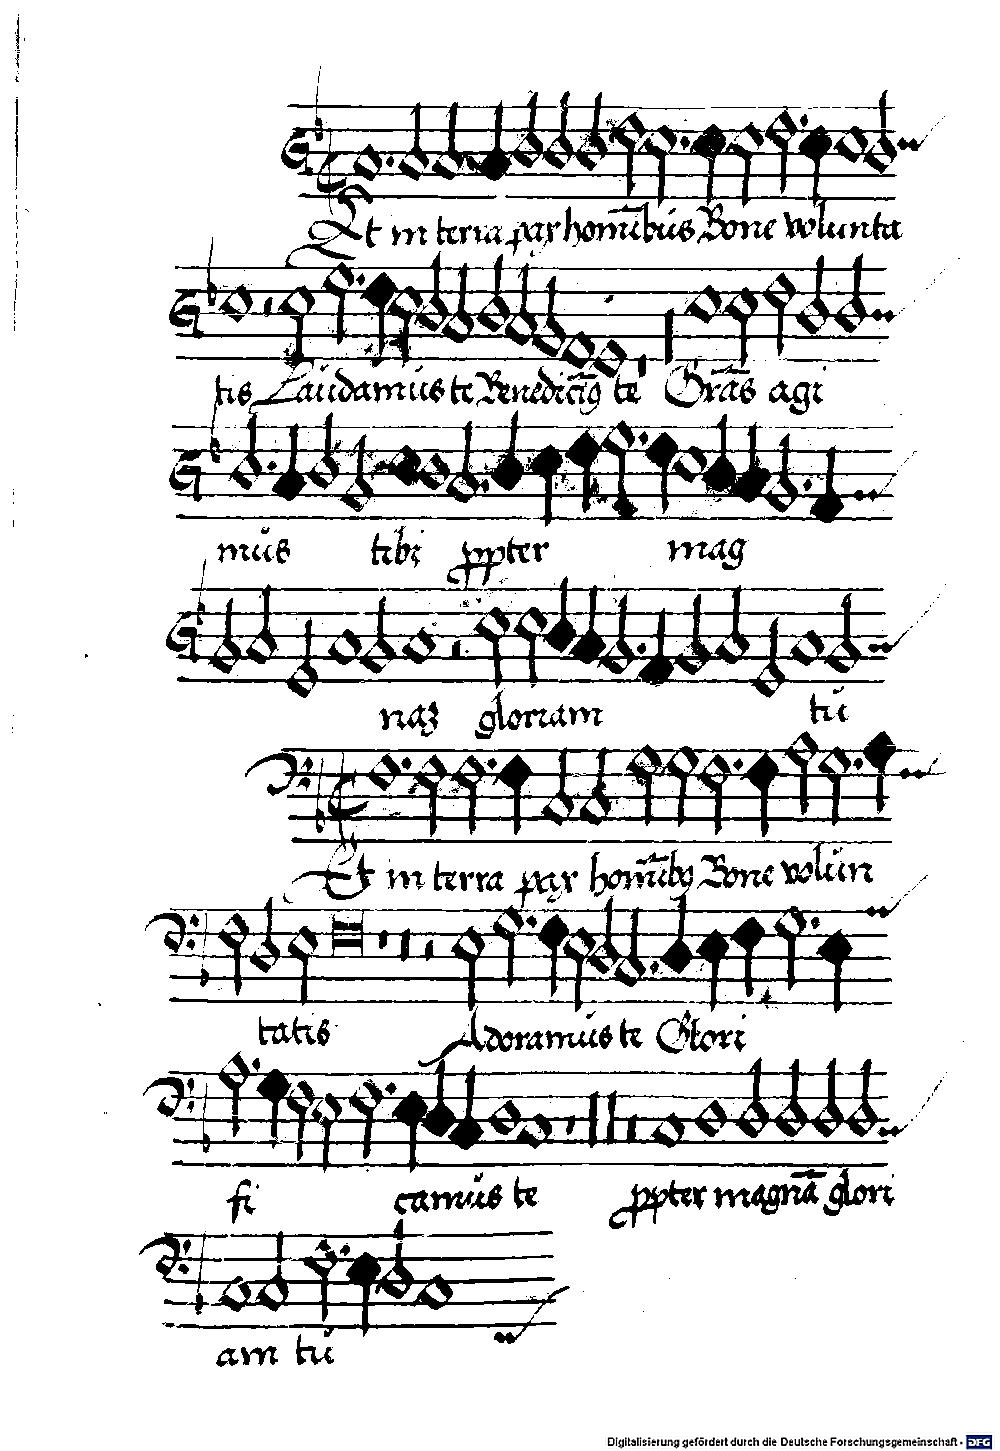 Et in terra pax hom̄ibus Bone volunta
tis Laudamus te te Grās agi
mus tibi ꝓpter mag
naʒ gloriam tu
Et in terra pax Bone volun
tatis Adoramus te Glori
fi camus te ꝓpter magnā glori
am tu
Digitalisierung gefördert durch die Deutsche Forschungsgemeinschaft - DFG